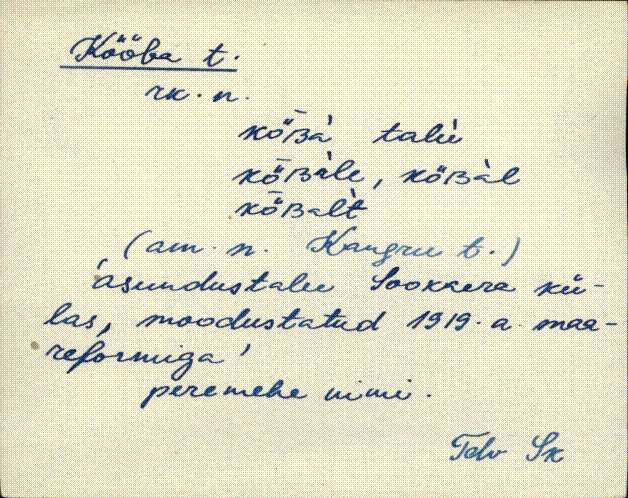 Kööba t.
rk. n.
kȫʙà talù
kȫʙàle, kȫʙàl
kȫʙalt̀
(am. n. Kangru t.)
'asundustalu Sookaera kü-
las, moodustatud 1919. a. maa-
reformiga'
peremehe nimi.